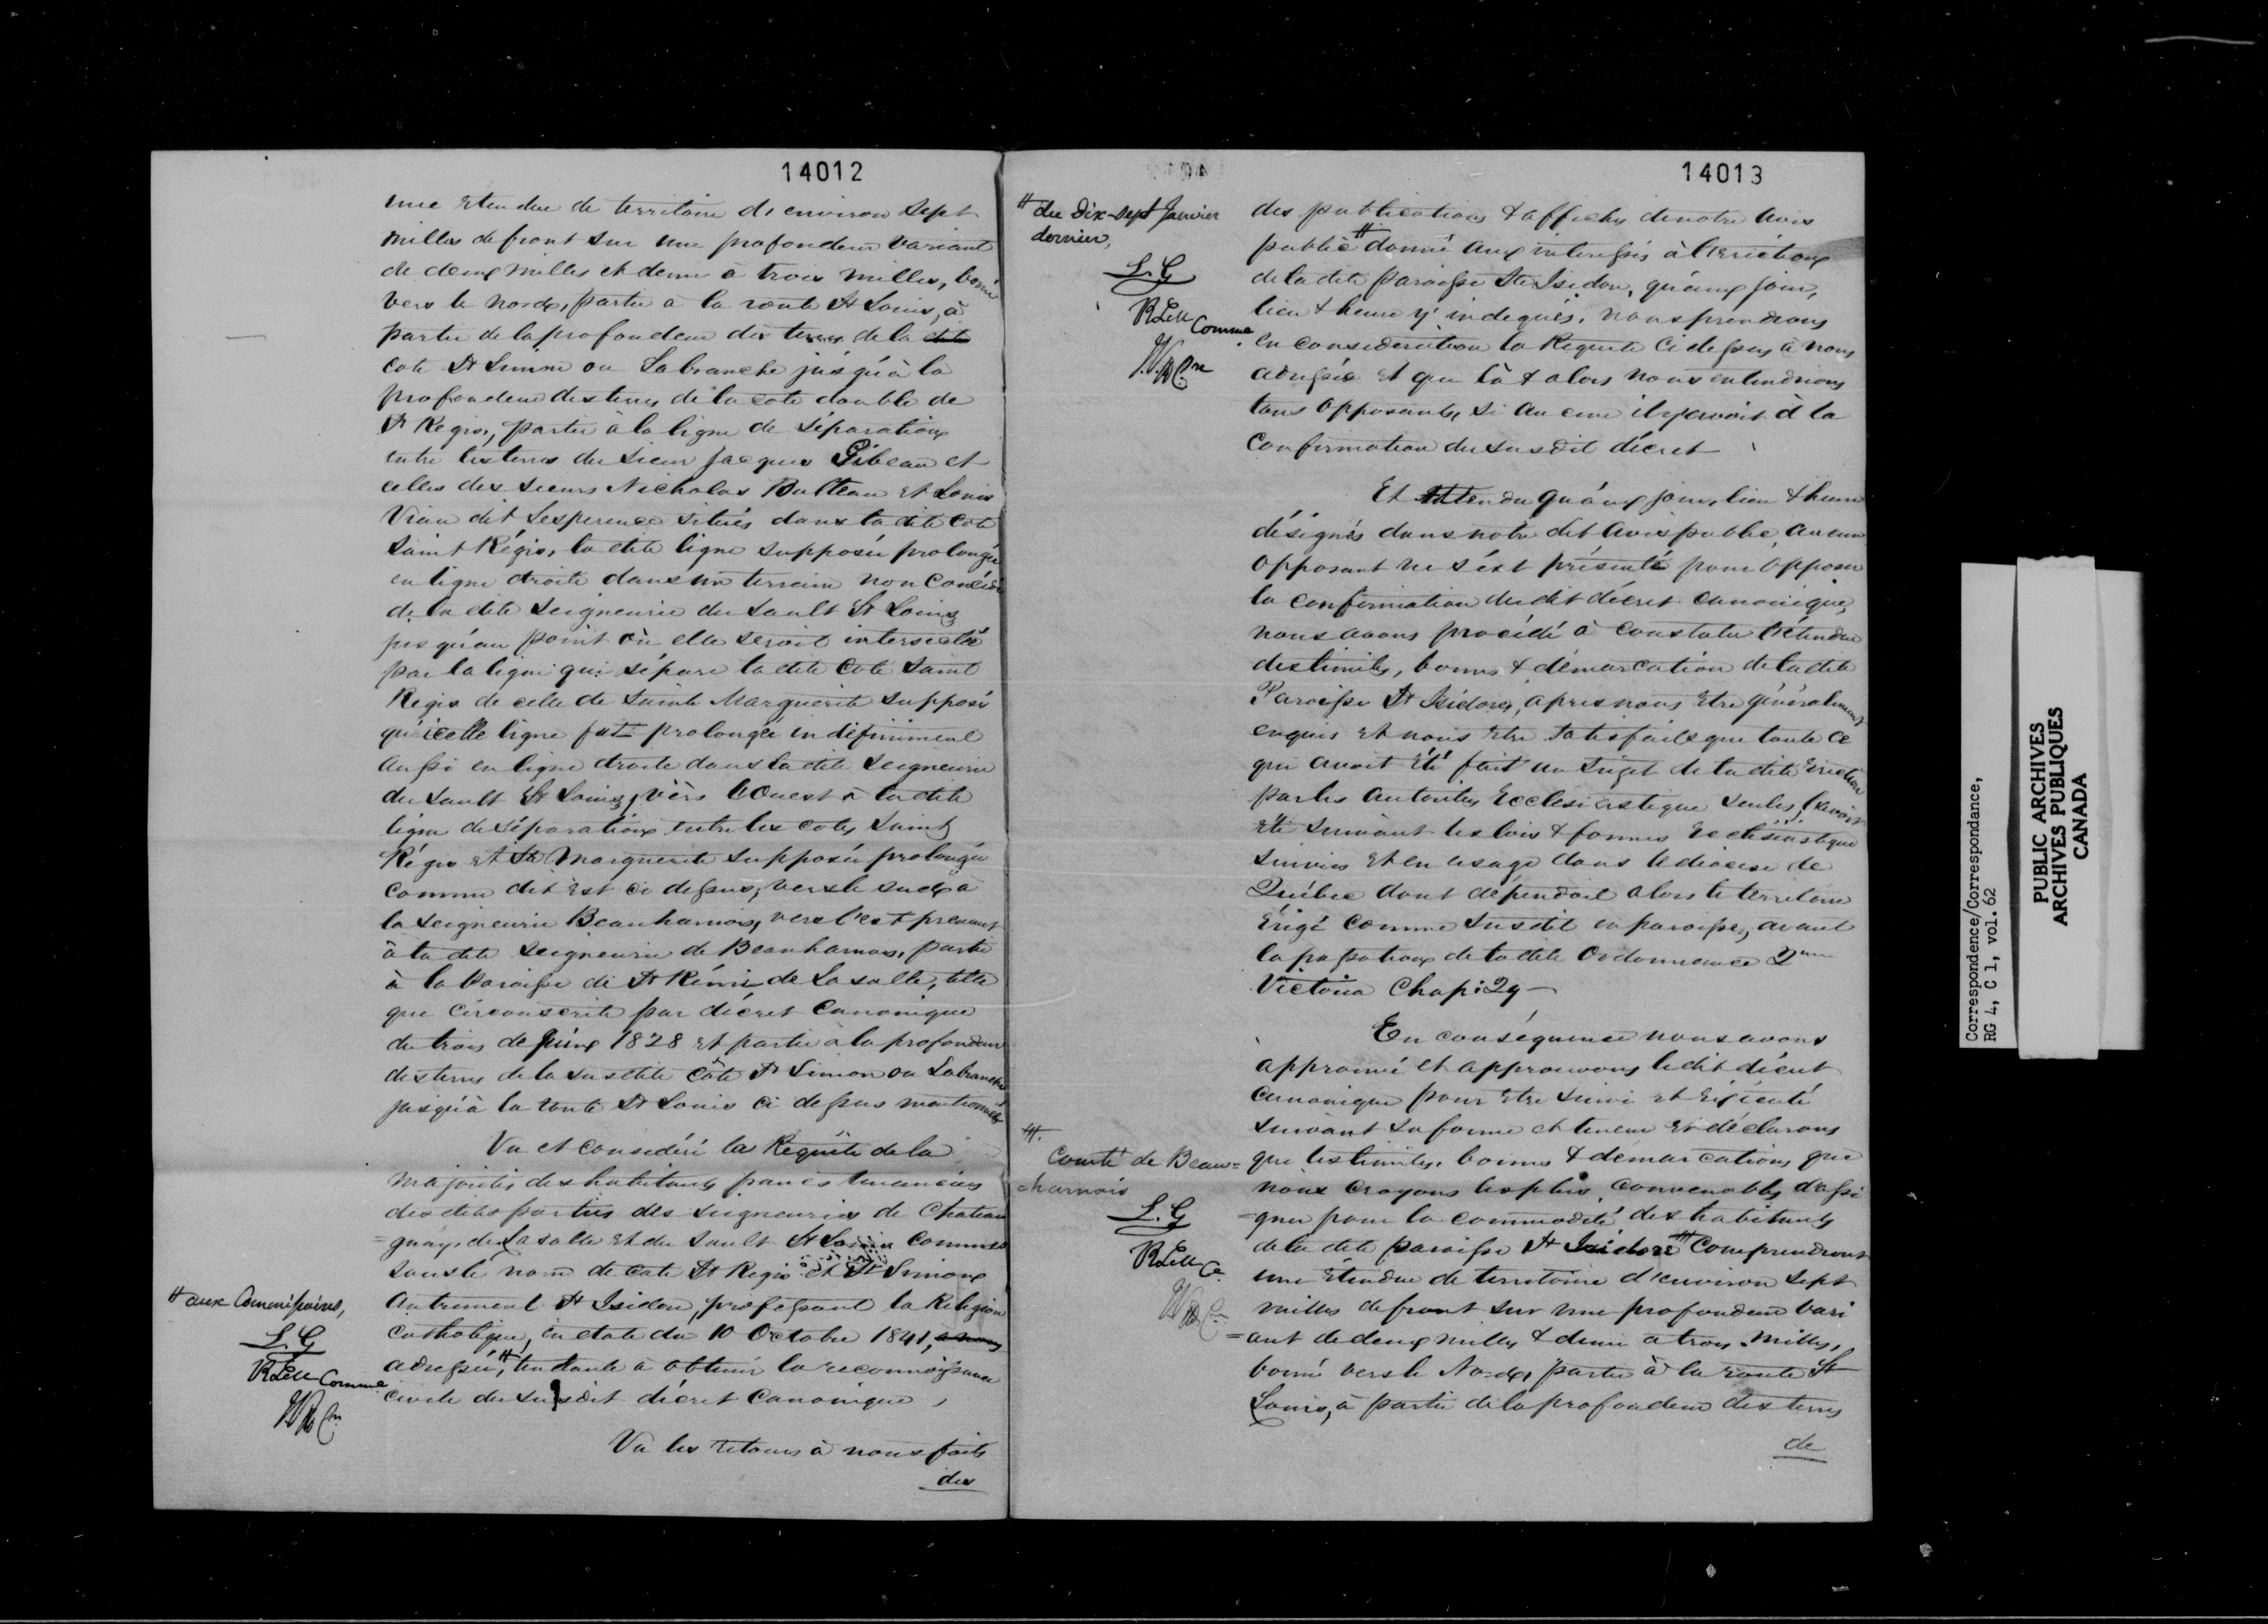 14012
une etendue de territoire d'environ Sept
milles de front sur une profondeur variant
de deux milles et demi à trois milles, borné
vers le nord, partie à la route St Louis, à
partir de la profondeur des terres de la dite
cote St Simon ou Labranche jusqu'à la
profondeur des terres de la cote double de
St Régis, partie à la ligne de séparation
entre les terres du Sieur Jacques Gibeau et
celles des Sieurs Nicholas Bulteau et Louis
Viau dit Lesperence situés dans la dite Cote
Saint Régis, la dite ligne supposée prolongée
en ligne droite dans un terrein non Concédé
de la dite Seigneurie du Sault St Louis
jusqu'au point où elle seroit intersectée
par la ligne qui sépare la dite Cote Saint
Regis de celle de Sainte Marguerite supposé
qu'icelle ligne fut prolongée indéfiniment
aussi en ligne droite dans la dite Seigneurie
du Sault St Louis, vèrs l'Ouest à la dite
ligne de séparation entre les cotes Saint
Régis et Ste Marguerite supposée prolongée
comme dit est ci dessus, vers le sud à
la Seigneurie Beauharnois, vers l'est prenant
à la dite Seigneurie de Beauharnois, partie
à la Paroisse de St Rémi de Lasalle, telle
que circonscrite par décret Canonique
du trois de Juin 1828 et partie à la profondeur
des terres de la susdite Côte St Simon ou Labranche
jusqu'à la route St Louis ci dessus mentionnée
Vu et considéré la Requête de la
majorités des habitants francs tenanciers
des dites parties des seigneuries de Chateau
=guay, de Lasalle et du Sault St Louis Connues
sous le nom de cote St Regis et St Simon
autrement St Isidore, professant la Religion
Catholique, en date du 10 Octobre 1841, à nous
adressée, # tendante à obtenir la reconnoissance
civile du susdit décret Canonique,
# aux Commissaires,
L. G
R Lell Comme
Vu les retours à nous faits
des
14013
# du Dix-sept Janvier
dernier,
L. G
R Lell Comme
des publications & affiches de notre Avis
public # donné aux intéressés à l'érection
de la dite paroisse St Isidore, qu'aux jour,
lieu & heure y indiqués, nous prendrons
en considération la Requete ci dessus à nous
adressée et que là & alors nous entendrions
tous opposants, si aucun il y avoit à la
Confirmation du susdit décret
Et Attendu qu'aux jour, lieu & heure
désignés dans notre dit Avis public, aucun
opposant ne s'est présenté pour opposer
la confirmation du dit décret canonique,
nous avons procédé à constater l'étendue
des limites, bornes & démarcation de la dite
Paroisse St Isidore, apres nous etre généralement
enquis et nous etre satisfaits que toute ce
qui avoit été fait au sujet de la dite érection
par les Autorités Ecclesiastique seules, l'avoit
été suivant les lois & formes Ecclésiastique
suivies et en usage dans le diocese de
Québec dont dépendoit alors le territoire
érigé comme susdit en paroisse, avant
la passation de la dite Ordonnance 2me
Victoria Chap: 29 —
En conséquence nous avons
approuvé et approuvons le dit décret
Canonique pour etre suivi et éxécuté
suivant sa forme et teneur et déclarons
que les limites, bornes & demarcations que
nous croyons les plus convenables d'assi
=gner pour la commodité des habitants
de la dite paroisse St Isidore ## comprendront
une étendue de territoire d'environ sept
milles de front sur une profondeur vari
=ant de deux milles & demie à trois milles,
borné vers le Nord, partie à la route St
Louis, à partir de la profondeur des terres
de
##.
Comté de Beau=
harnois
L. G
R Lell Ce
Correspondence/Correspondance,
RG 4, C 1, vol. 62
PUBLIC ARCHIVES
ARCHIVES PUBLIQUES
CANADA